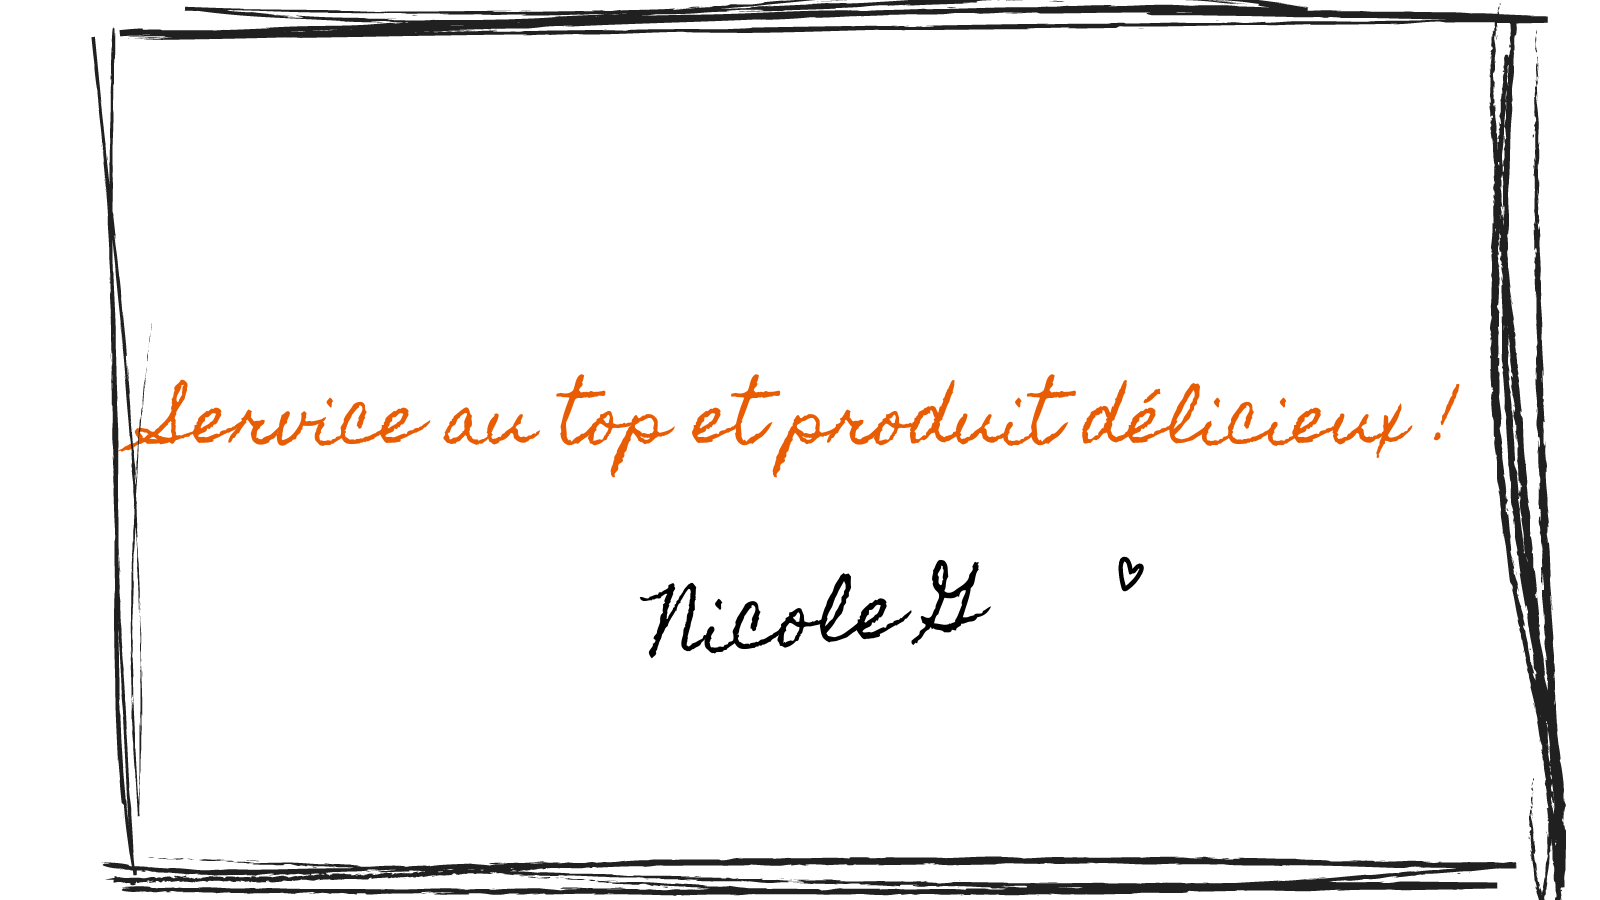 Service au top et produit délicieux !
Nicole G